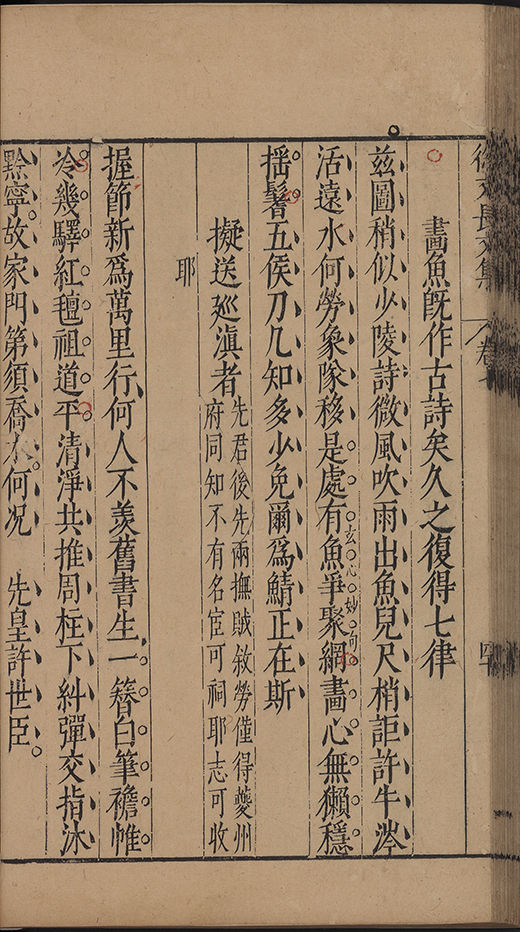 徐文長文集 卷七
畫魚旣作古詩矣久之復得七律
兹圖稍似少陵詩微風吹雨出魚兒尺梢詎許牛涔
活遠水何勞象隊移是處有魚爭聚網畫心無獺穩
玄心妙句
揺鬐五侯刀几知多少免爾爲鯖正在斯
擬送廵滇者
先君後先兩撫賊敘勞僅得夔州
府同知不有名宦可祠耶志可收
耶
握節新爲萬里行何人不羨舊書生一簪白筆襜帷
冷幾驛紅氊祖道平清淨共推周柱下糾彈交指沐
黔寧故家門第須喬木何况 先皇許世臣